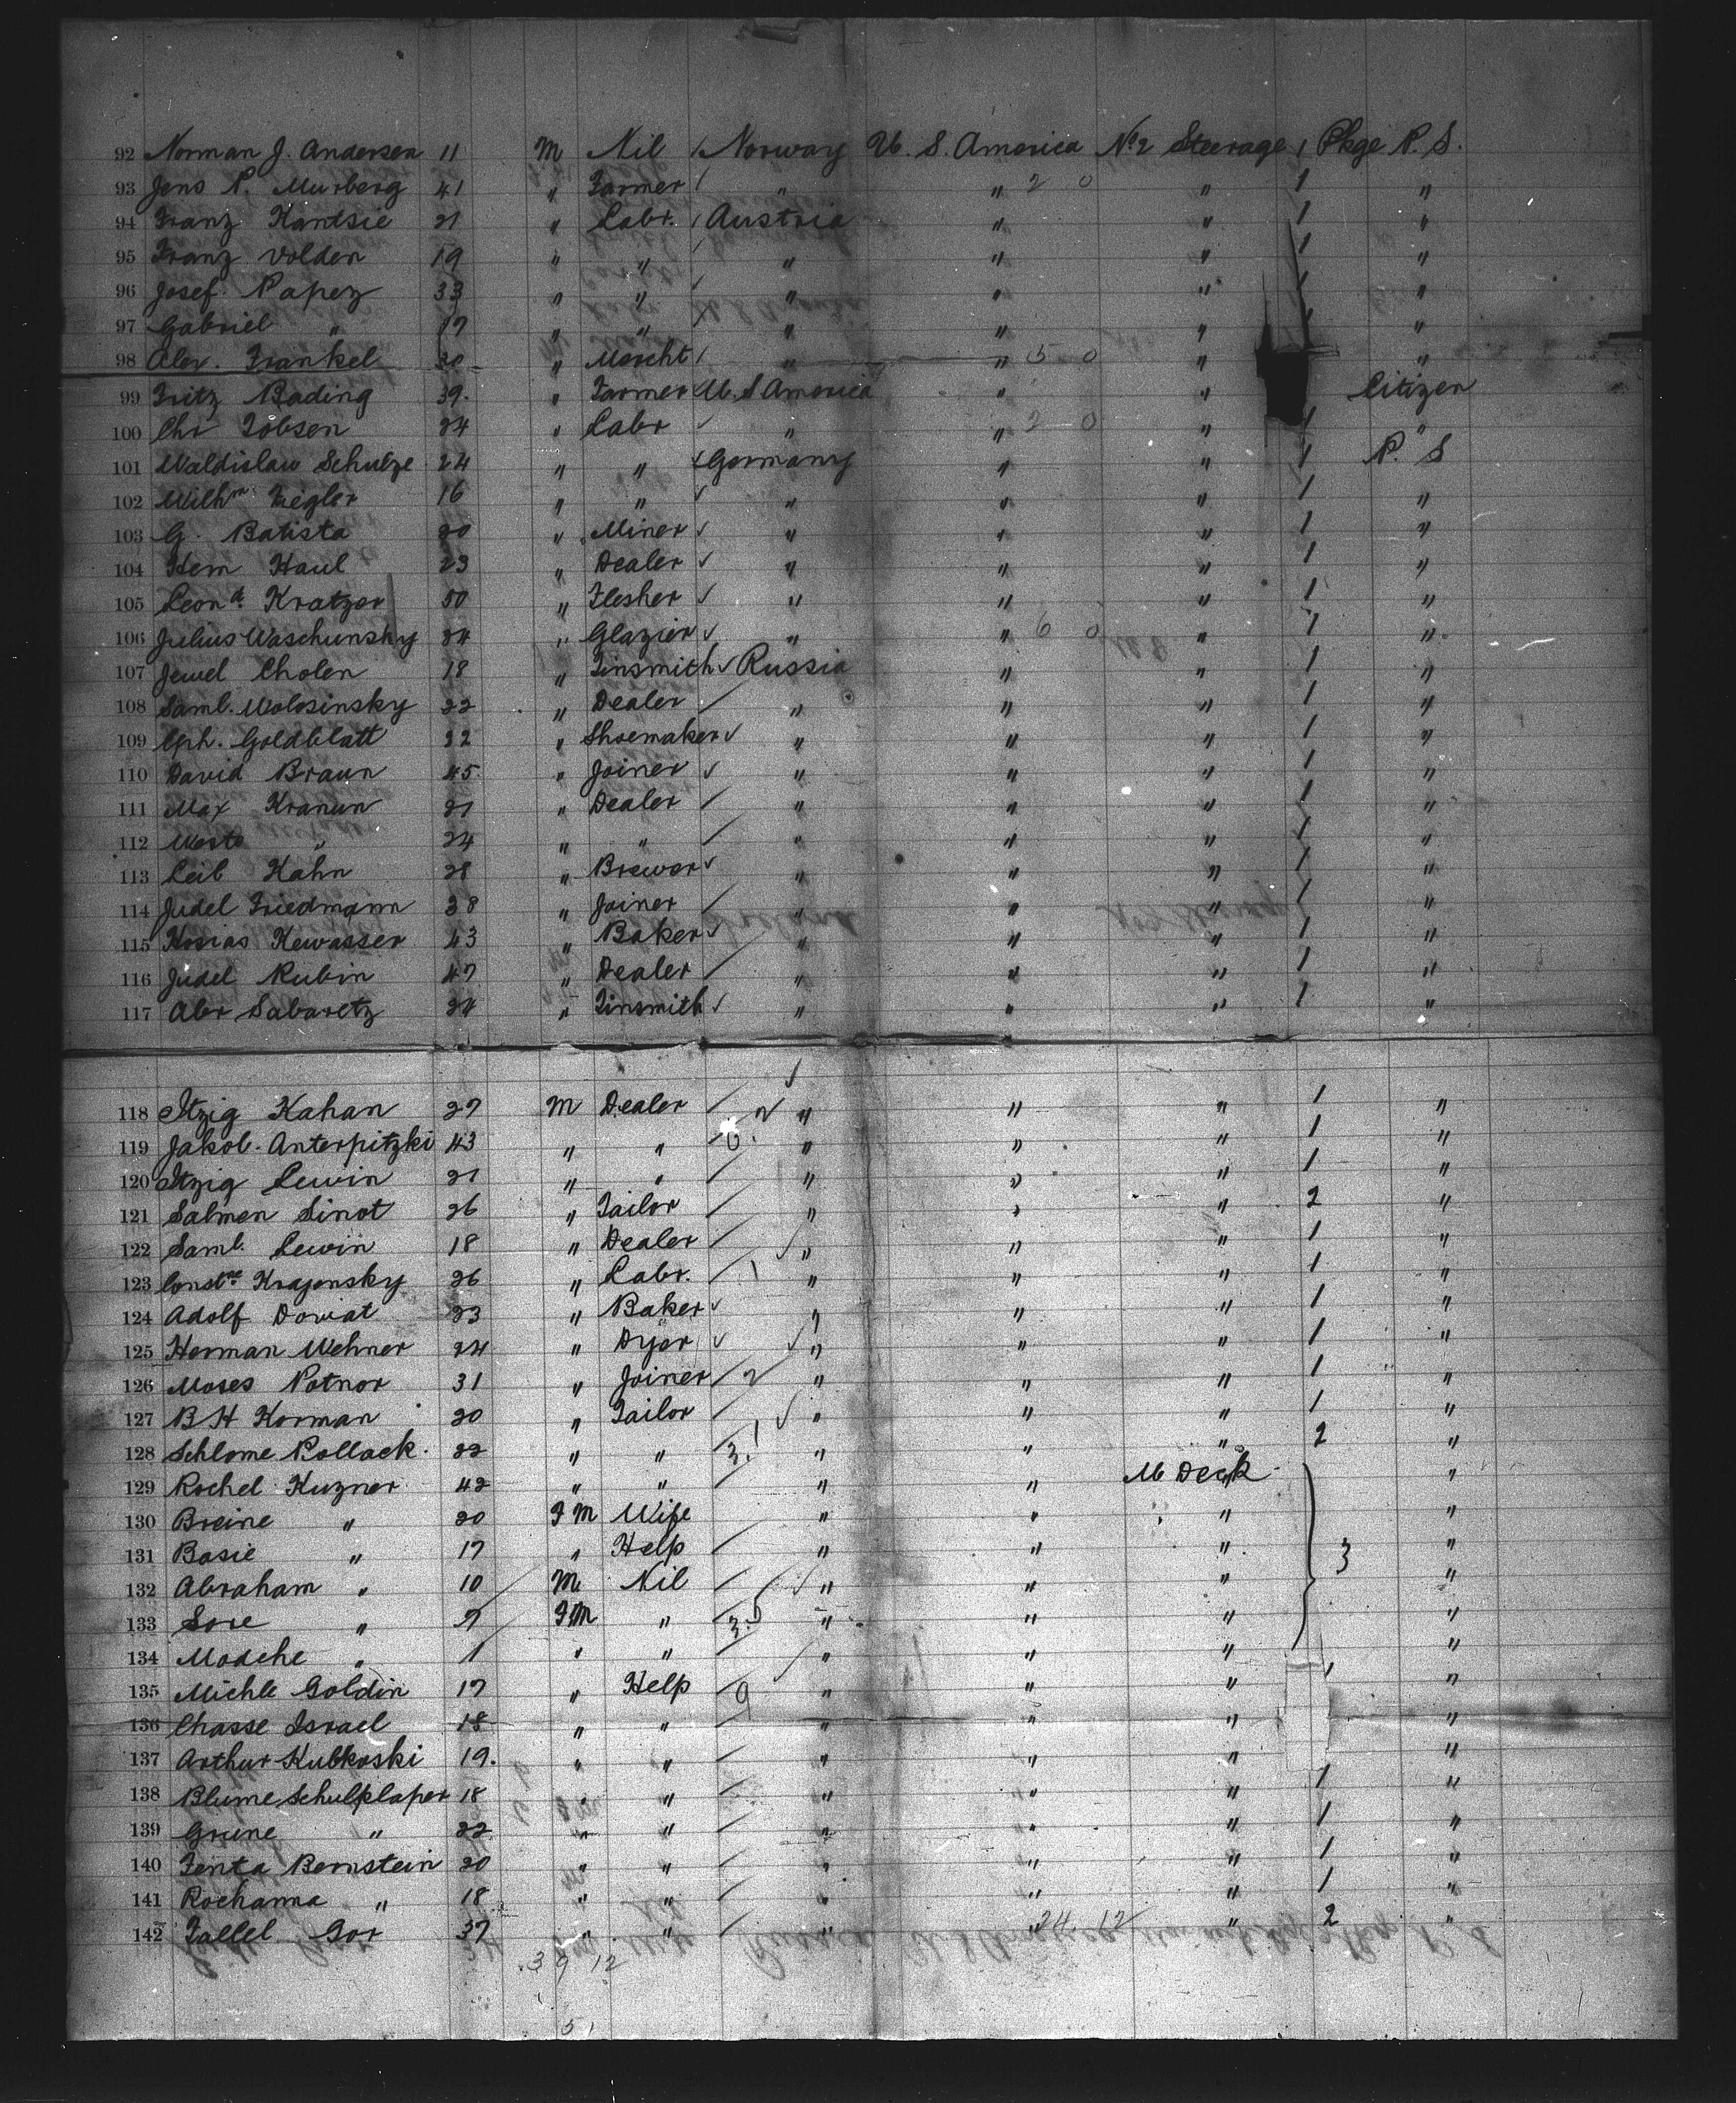 92 Norman J. Andersen 11 M Nil / Norway U. S. America No 2 Steerage 1 Pkge P. S.
93 Jens P. Murberg 41 " Farmer / " " 2 0 " 1 "
94 Franz Kantsie 21 " Labr. / Austria " " 1 "
95 Franz Volden 19 " " / " " " 1 "
96 Josef Papez 33 " " / " " " 1 "
97 Gabriel " 17 " " / " " " 1 "
98 Alex. Frankel 30 " Mercht / " " 5 0 " "
99 Fritz Bading 39. " Farmer U. S America " " Citizen
100 Chr Jobsen 24 " Labr ✓ " " 2 0 " 1 "
101 Waldislaw Schulze 24 " " ✓ Germany " " 1 P. S
102 Wilhm Ziegler 16 " " ✓ " " " 1 "
103 G. Batista 20 " Miner ✓ " " " 1 "
104 Hem Haul 23 " Dealer ✓ " " " 1 "
105 Leond Kratzer 50 " Flesher ✓ " " " 1 "
106 Julius Waschunsky 34 " Glazier ✓ " " 6 0 " 1 "
107 Jewel Cholen 18 " Tinsmith ✓ Russia " " 1 "
108 Saml. Wolosinsky 22 " Dealer / " " " 1 "
109 Eph. Goldblatt 32 " Shoemaker ✓ " " " 1 "
110 David Braun 45 " Joiner ✓ " " " 1 "
111 Max Kranun 21 " Dealer / " " " 1 "
112 " 24 " " / " " " 1 "
113 Leib Kahn 28 " Brewer ✓ " " " 1 "
114 Judel Friedmann 38 " Joiner / " " " 1 "
115 Hosias Kewasser 43 " Baker ✓ " " " 1 "
116 Judel Rubin 47 " Dealer / " " " 1 "
117 Abr Sabaretz 24 " Tinsmith ✓ " " " 1 "
118 Itzig Kahan 27 M Dealer / " " " 1 "
119 Jakob Anterpitzki 43 " " / " " " 1 "
120 Itzig Lewin 21 " " / " " " 1 "
121 Salmen Sinot 26 " Tailor / " " " 2 "
122 Saml. Lewin 18 " Dealer / " " " 1 "
123 Constne Krajensky 26 " Labr. / " " " 1 "
124 Adolf Dowiat 23 " Baker ✓ " " " 1 "
125 Herman Wehner 24 " Dyer ✓ " " " 1 "
126 Moses Potnor 31 " Joiner / 2 " " " 1 "
127 B H Korman 20 " Tailor / " " " 1 "
128 Schlome Pollack 22 " " / 3. " " " 2 "
129 Rochel Kuzner 42 " " / " " M Deck "
130 Breine " 20 F M Wife " " " "
131 Basie " 17 " Help / " " " 3 "
132 Abraham " 10 M Nil / " " " "
133 Sore " 7 F M " / 3. " " " "
134 Modche " 1 " " / " " " "
135 Michle Goldin 17 " Help / " " " 1 "
136 Chasse Israel 18 " " / " " " "
137 Arthur Kubkoski 19. " " / " " " "
138 Blume Schulklaper 18 " " / " " " 1 "
139 Grune " 22 " " / " " " 1 "
140 Fenta Bernstein 20 " " / " " " 1 "
141 Rochama " 18 " " / " " " 1 "
142 Tallel Gor 37 " " / " " 24. 12 " 2 "
39 12
51